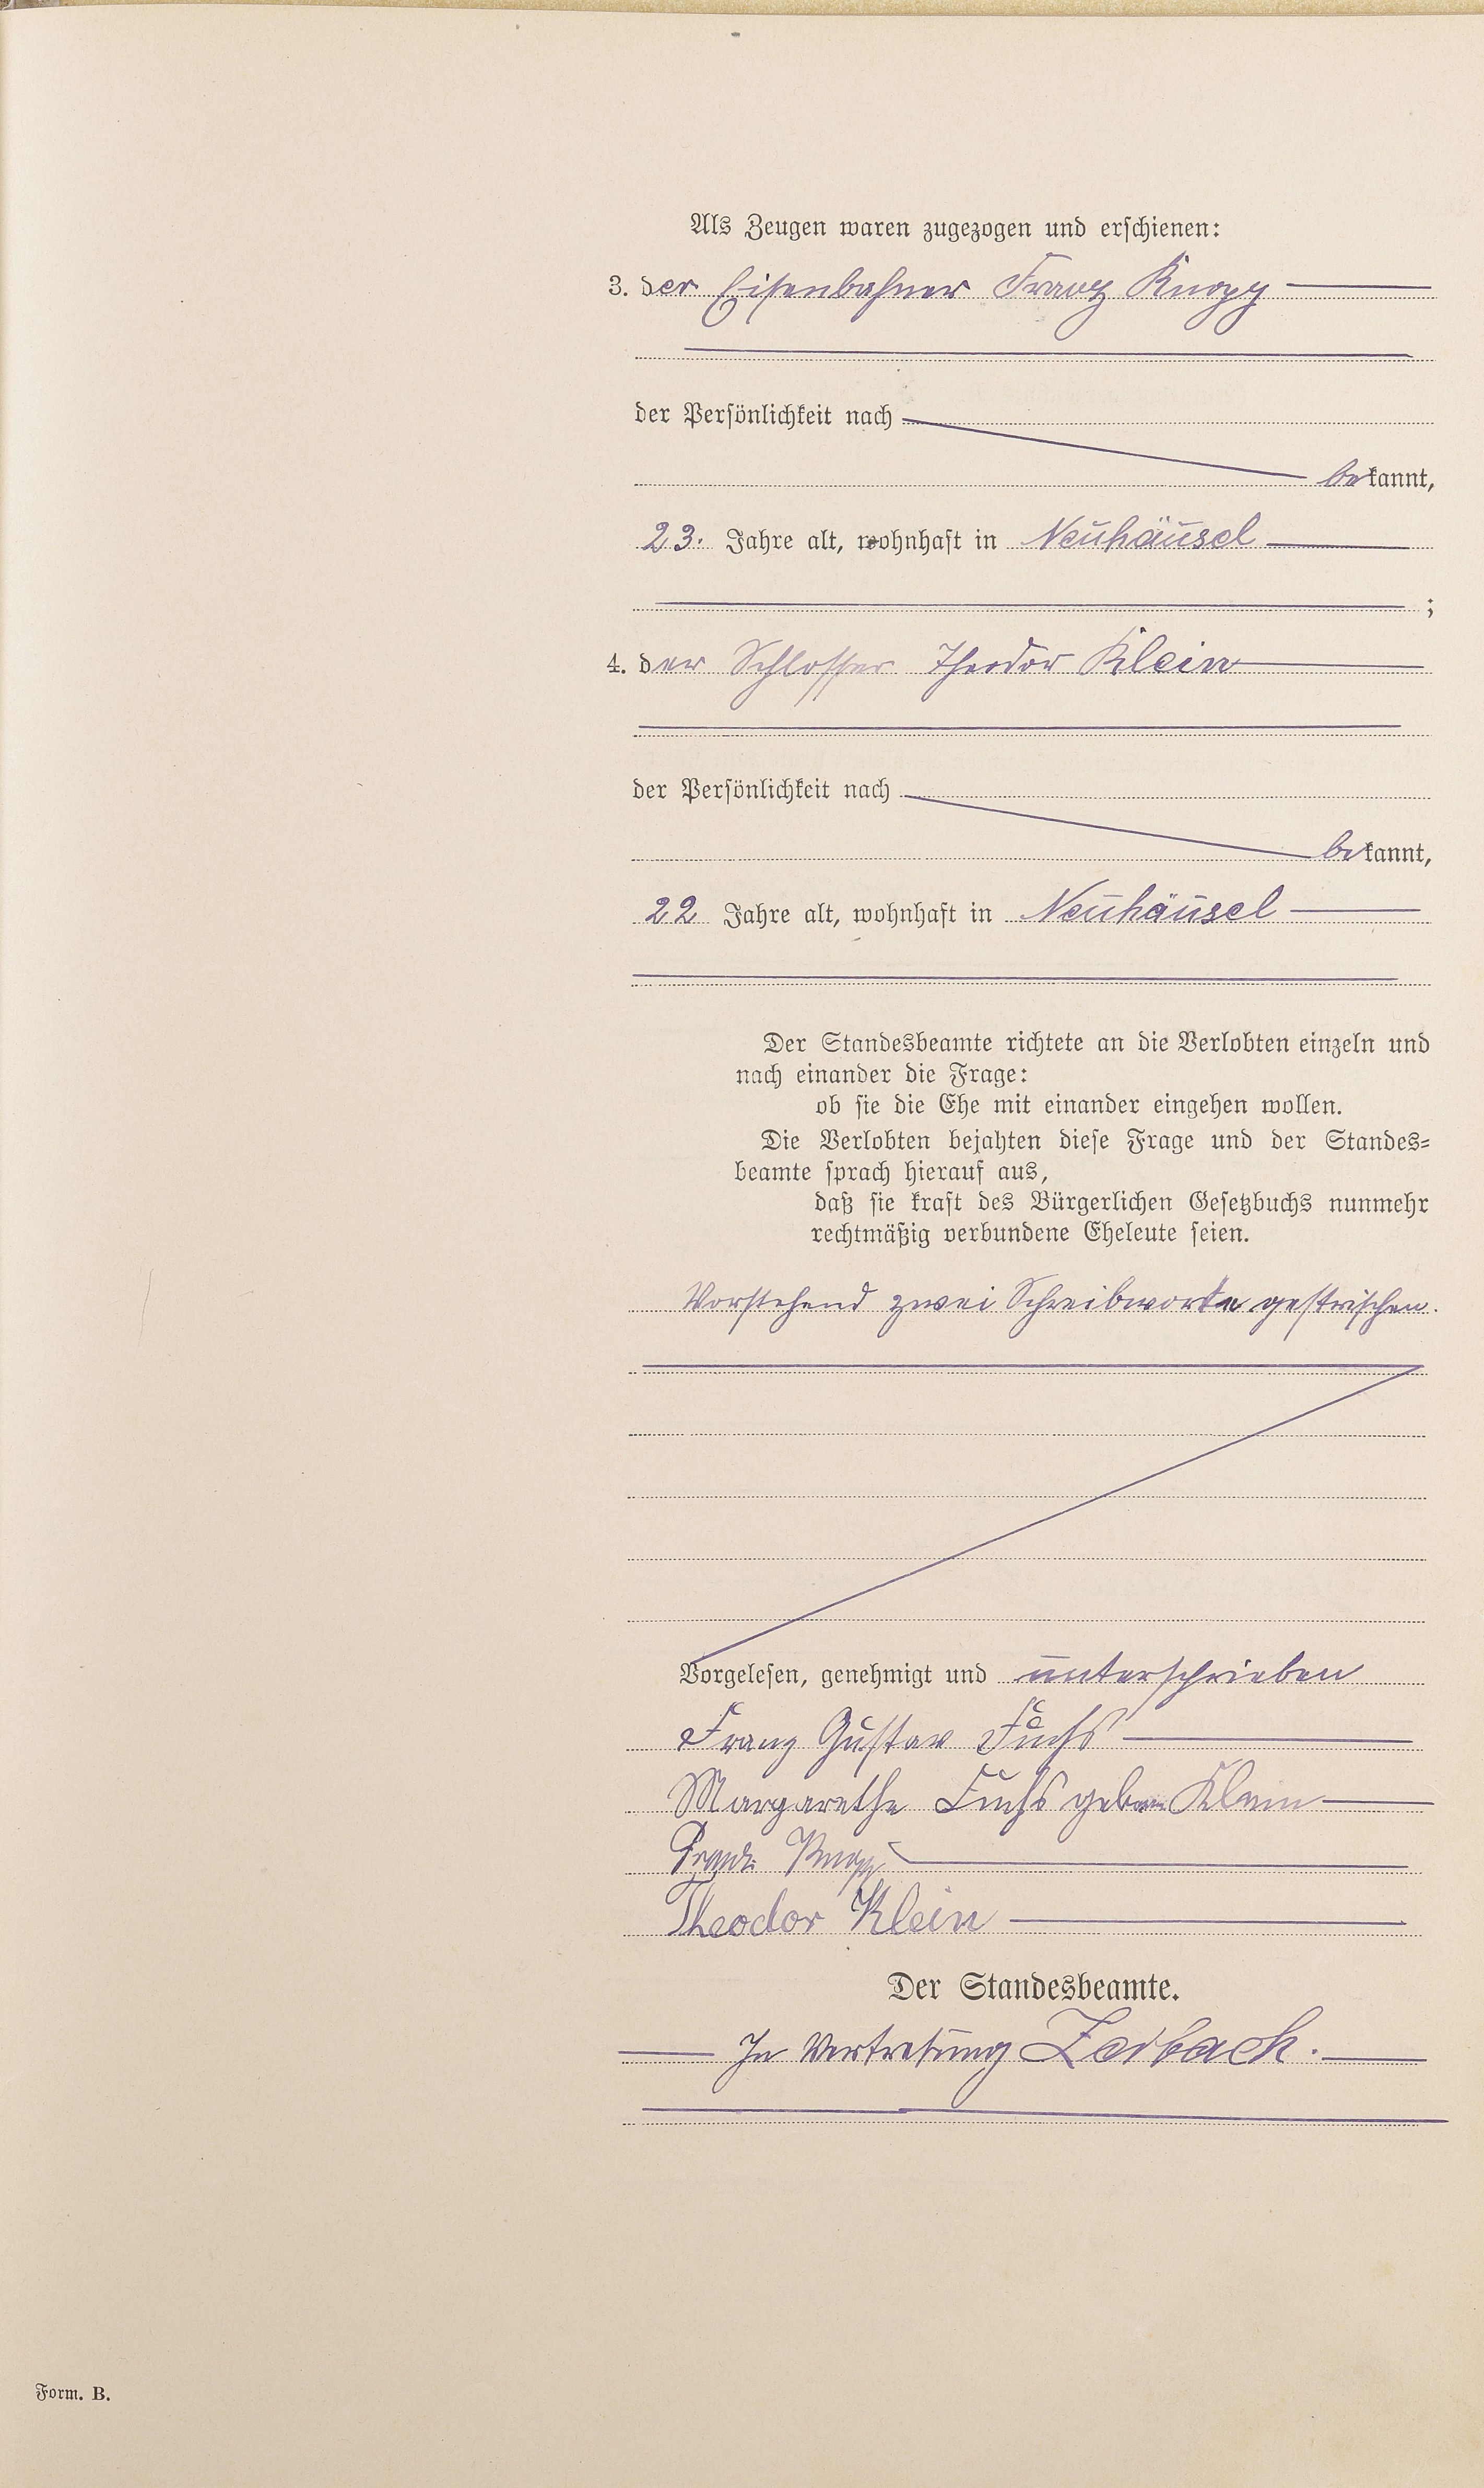 Als Zeugen waren zugezogen und erschienen:
3. der Eisenbahner Franz Knopp
der Persönlichkeit nach
bekannt,
23. Jahre alt, wohnhaft in Neuhäusel
;
4. der Schlosser Theodor Klein
der Persönlichkeit nach
bekannt,
22 Jahre alt, wohnhaft in Neuhäusel
Der Standesbeamte richtete an die Verlobten einzeln und
nach einander die Frage:
ob sie die Ehe mit einander eingehen wollen.
Die Verlobten bejahten diese Frage und der Standes-
beamte sprach hierauf aus,
daß sie kraft des Bürgerlichen Gesetzbuchs nunmehr
rechtmäßig verbundene Eheleute seien.
Vorstehend zwei Schreibworte gestrichen.
Vorgelesen, genehmigt und unterschrieben
Franz Gustav Fuchs
Margarethe Fuchs geboren Klein
Franz Knopp
Theodor Klein
Der Standesbeamte.
In Vertretung
Form. B.